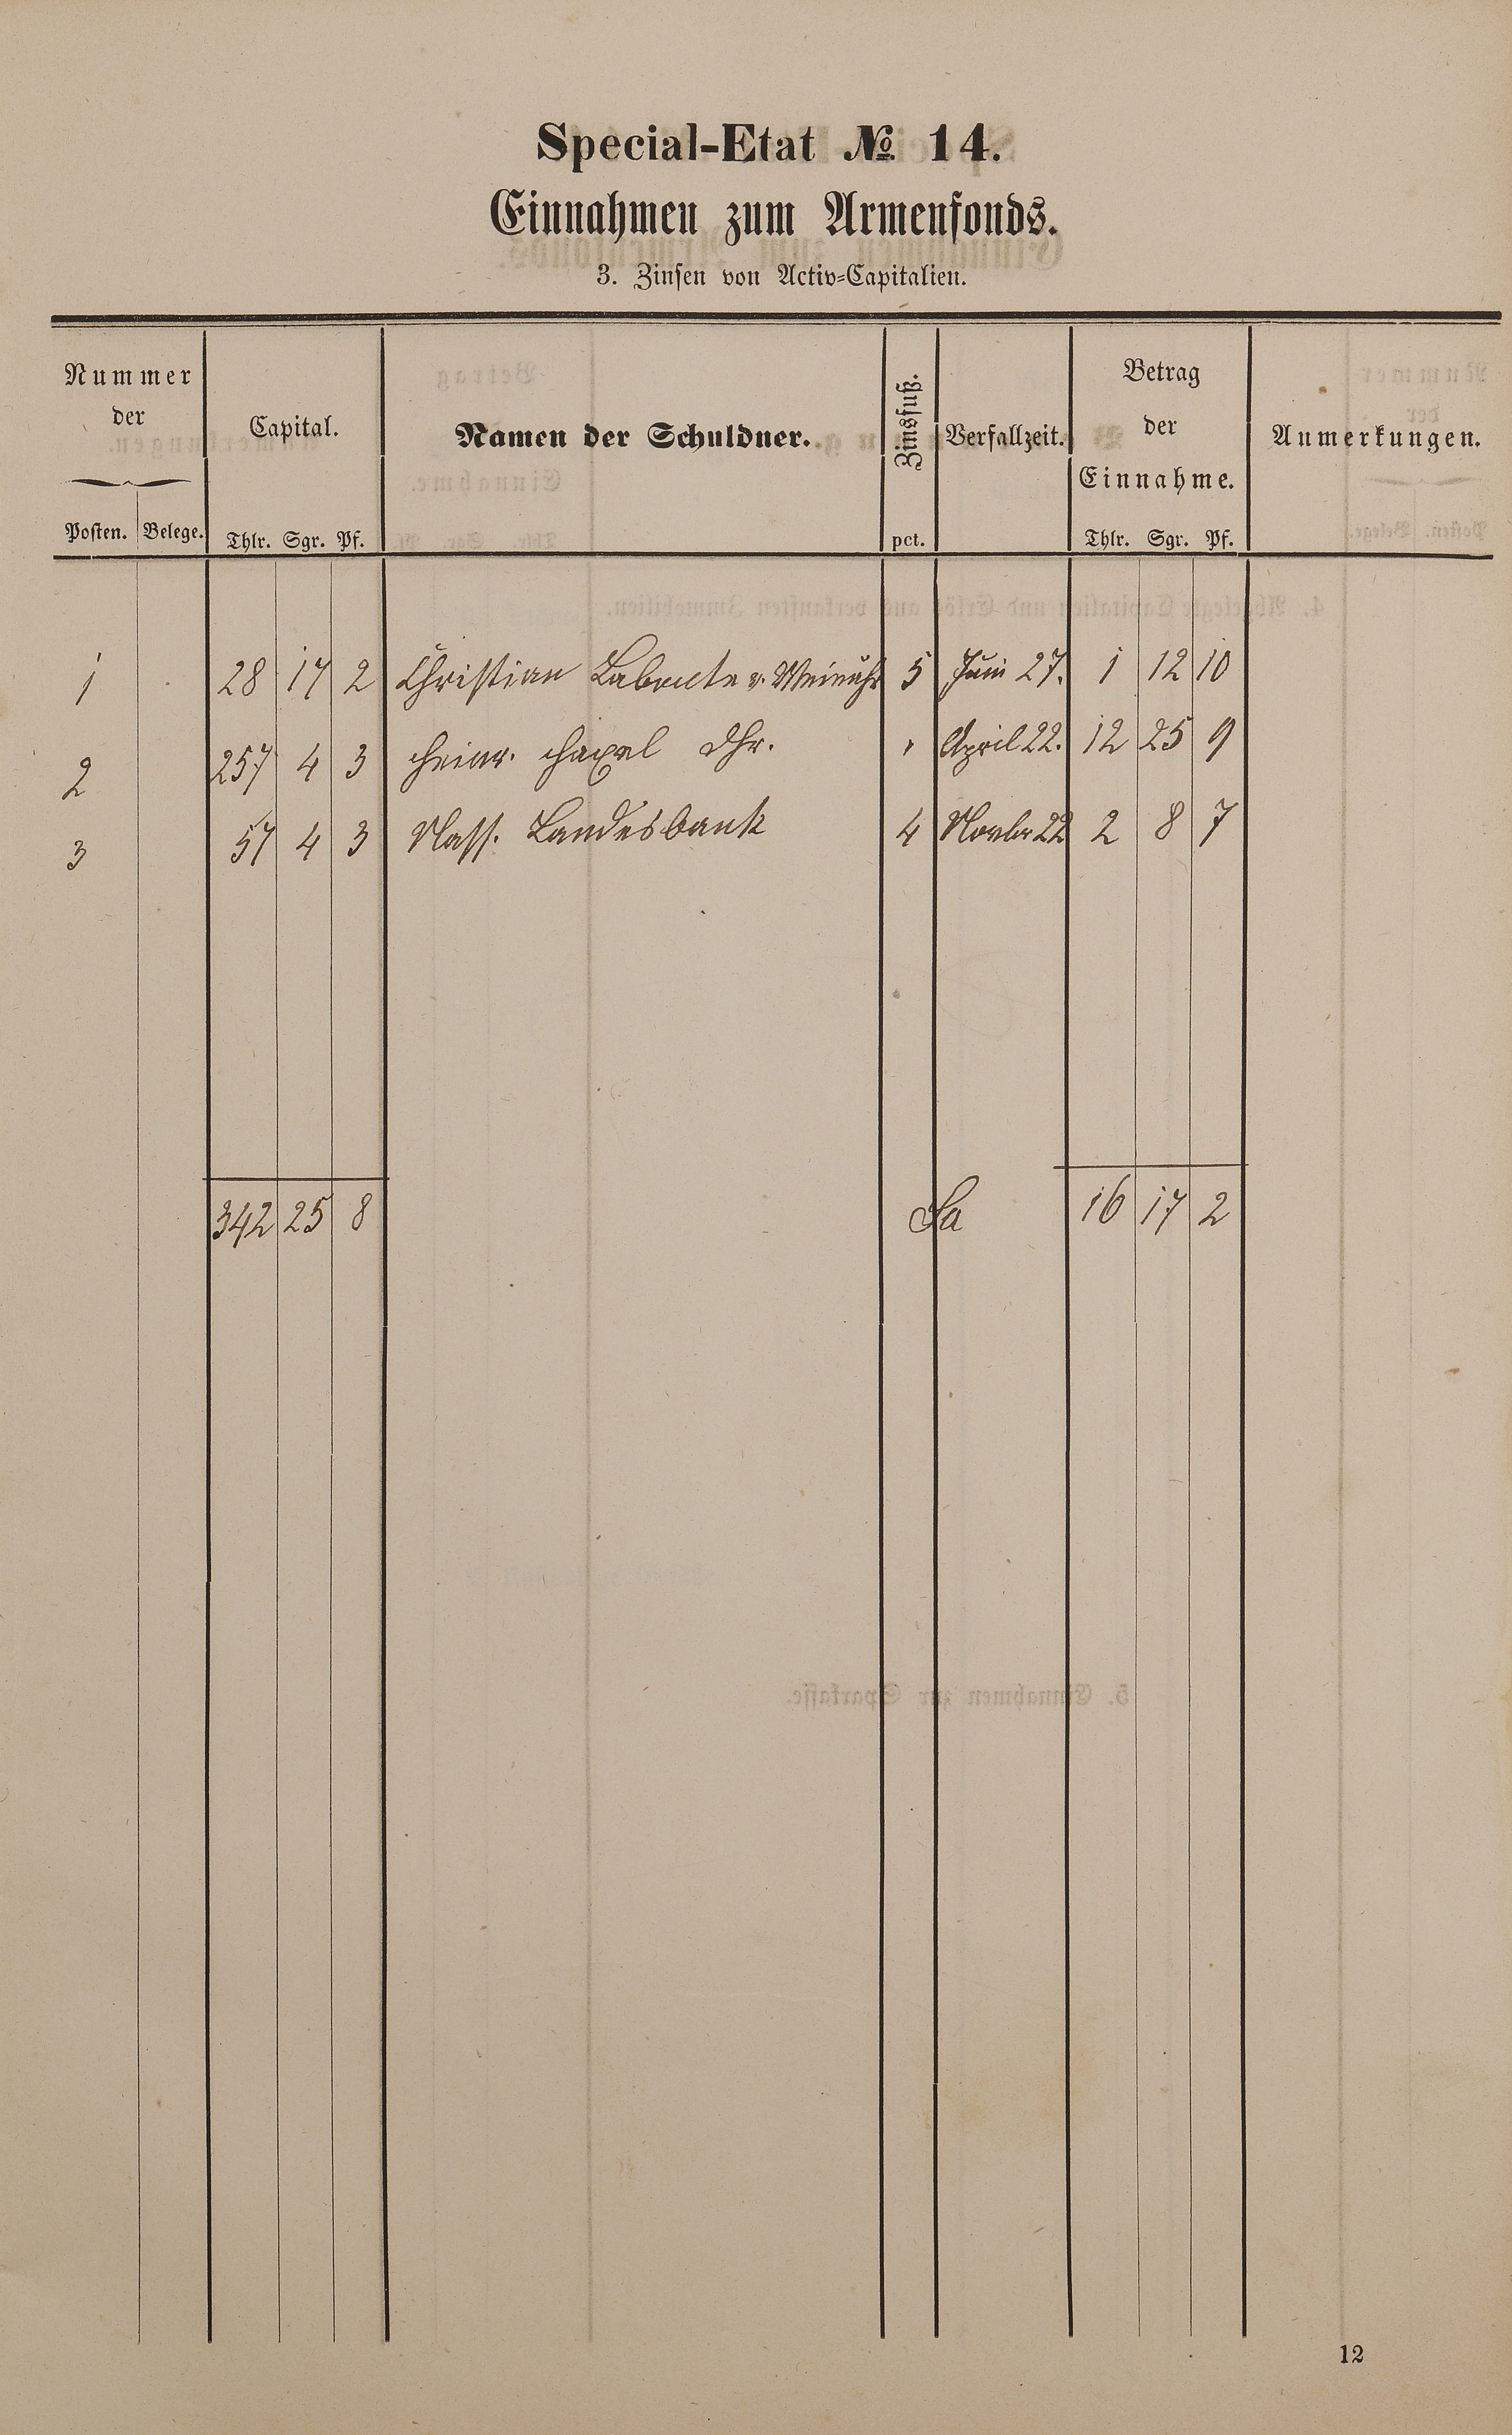 Special-Etat № 14.
Einnahmen zum Armenfonds.
3. Zinsen von Activ-Capitalien.
Nummer der
Posten. Belege.
Capital.
Thlr. Sgr. Pf.
Namen der Schuldner.
Zinsfuß.
pct.
Verfallzeit.
Betrag
der
Einnahme.
Thlr. Sgr. Pf.
Anmerkungen.
1 28 17 2 Christian v. Weinähr 5 Juni 27. 1 12 10
2 257 4 3 Heinr. " April 22. 12 25 9
3 57 4 3 Nass. Landesbank 4 Novbr 22 2 8 7
342 25 8 Sa 16 17 2
12